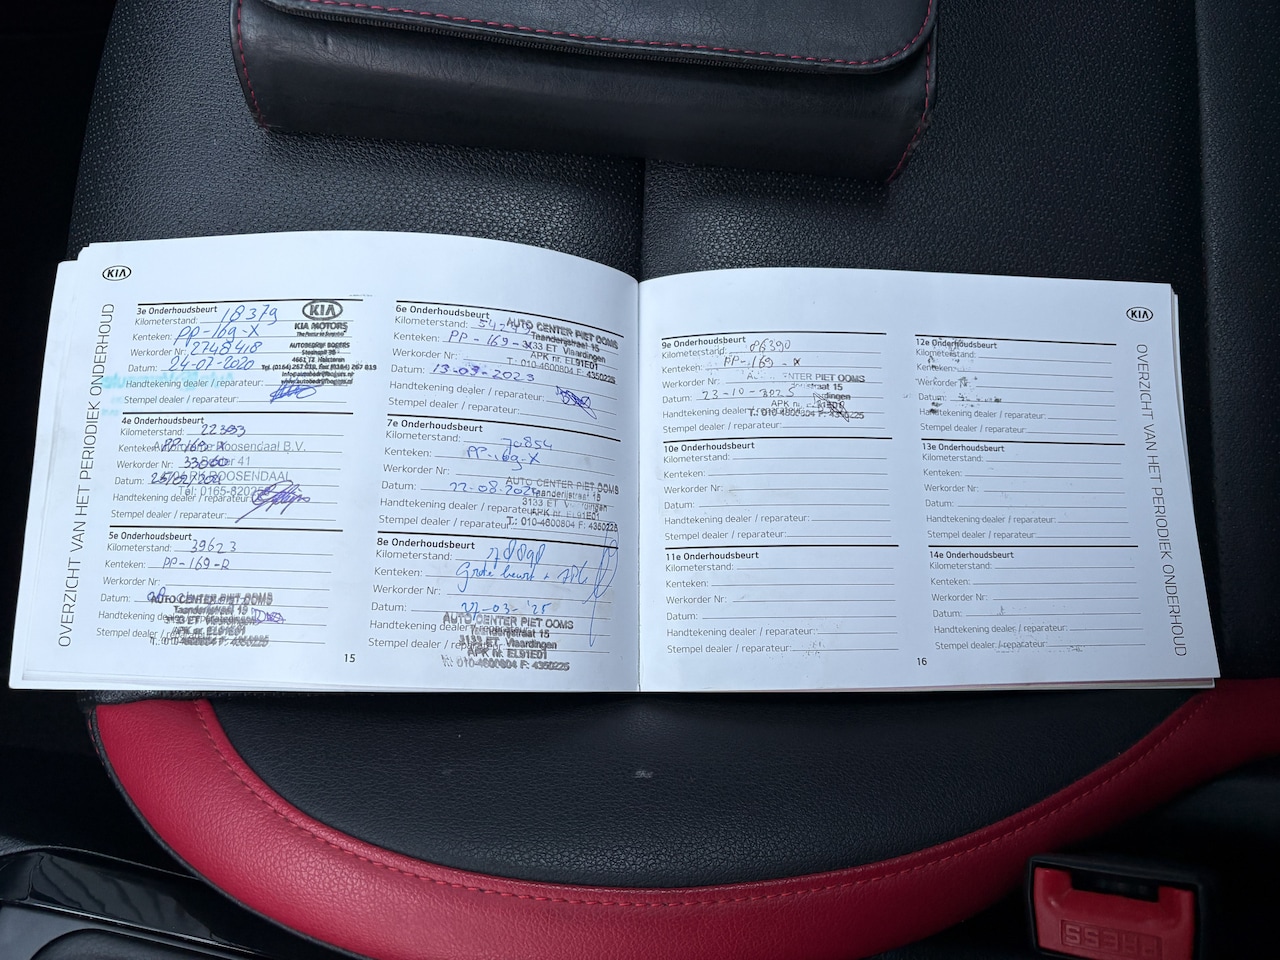 KIA
OVERZICHT VAN HET PERIODIEK ONDERHOUD
3e Onderhoudsbeurt
Kilometerstand: 18379
Kenteken: PP-169-X
Werkorder Nr: 2748418
Datum: 24-07-2020
Handtekening dealer / reparateur:
Stempel dealer / reparateur:
KIA
KIA MOTORS
The Power to Surprise
AUTOBEDRIJF BOGERS
4e Onderhoudsbeurt
Kilometerstand: 22393
Kenteken: PP-169-X
Werkorder Nr:
Datum:
Handtekening dealer / reparateur:
Stempel dealer / reparateur:
Roosendaal B.V.
ROOSENDAAL
5e Onderhoudsbeurt
Kilometerstand: 39623
Kenteken: PP-169-R
Werkorder Nr:
Datum:
Handtekening dealer
Stempel dealer
AUTO CENTER PIET OOMS
Taanderijstraat 15
3133 ET Vlaardingen
APK nr. EL91E01
T.: 010-4600804 F: 4350225
15
6e Onderhoudsbeurt
Kilometerstand:
Kenteken: PP-169-X
Werkorder Nr:
Datum: 13-09-2023
Handtekening dealer / reparateur:
Stempel dealer / reparateur:
AUTO CENTER PIET OOMS
Taanderijstraat 15
3133 ET Vlaardingen
APK nr. EL91E01
T.: 010-4600804 F: 4350225
7e Onderhoudsbeurt
Kilometerstand: 70854
Kenteken: PP-169-X
Werkorder Nr:
Datum: 22-08-2024
Handtekening dealer / reparateur:
Stempel dealer / reparateur:
AUTO CENTER PIET OOMS
Taanderijstraat 15
3133 ET Vlaardingen
APK nr. EL91E01
T.: 010-4600804 F: 4350225
8e Onderhoudsbeurt
Kilometerstand:
Kenteken: Grote beurt + APK
Werkorder Nr:
Datum: 22-03-'25
Handtekening dealer
Stempel dealer
AUTO CENTER PIET OOMS
Taanderijstraat 15
3133 ET Vlaardingen
APK nr. EL91E01
T.: 010-4600804 F: 4350225
KIA
OVERZICHT VAN HET PERIODIEK ONDERHOUD
9e Onderhoudsbeurt
Kilometerstand: 86390
Kenteken: PP-169-X
Werkorder Nr:
Datum: 23-10-2025
Handtekening dealer
Stempel dealer / reparateur:
CENTER PIET OOMS
T.: 010-4600804 F: 4350225
10e Onderhoudsbeurt
Kilometerstand:
Kenteken:
Werkorder Nr:
Datum:
Handtekening dealer / reparateur:
Stempel dealer / reparateur:
11e Onderhoudsbeurt
Kilometerstand:
Kenteken:
Werkorder Nr:
Datum:
Handtekening dealer / reparateur:
Stempel dealer / reparateur:
16
12e Onderhoudsbeurt
Kilometerstand:
Kenteken:
Werkorder Nr:
Datum:
Handtekening dealer / reparateur:
Stempel dealer / reparateur:
13e Onderhoudsbeurt
Kilometerstand:
Kenteken:
Werkorder Nr:
Datum:
Handtekening dealer / reparateur:
Stempel dealer / reparateur:
14e Onderhoudsbeurt
Kilometerstand:
Kenteken:
Werkorder Nr:
Datum:
Handtekening dealer / reparateur:
Stempel dealer / reparateur:
PRESS